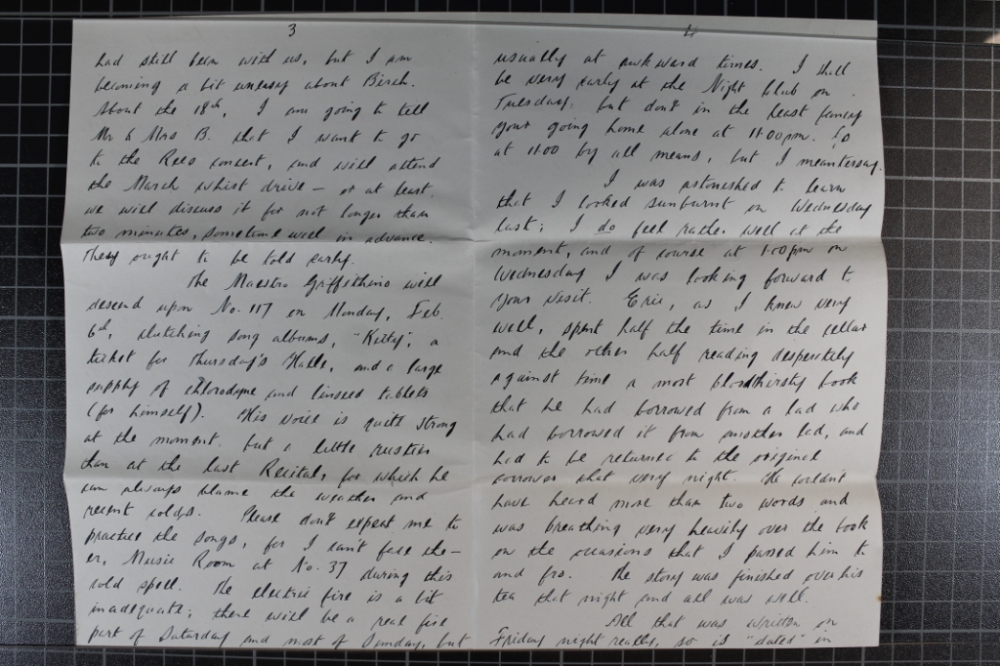 3
had still been with us, but I am
becoming a bit uneasy about Birch.
About the 18th, I am going to tell
Mr & Mrs B. that I want to go
to the Reco concert, and will attend
the March whist drive – or at least,
we will discuss it for not longer than
two minutes, sometime well in advance.
They ought to be told early.
The Maestro Griffithino will
descend upon No. 117 on Monday, Feb.
6th, clutching song albums, "Kitty", a
ticket for Thursday's Hallé, and a large
supply of chlorodyne and linseed tablets
(for himself). His voice is quite strong
at the moment, but a little rustier
than at the last Recital, for which he
can always blame the weather and
recent colds. Please don't expect me to
practice the songs, for I can't face the –
er, Music Room at No. 37 during this
cold spell. The electric fire is a bit
inadequate; there will be a real fire
part of Saturday and most of Sunday, but
4
usually at awkward times. I shall
be very early at the Night Club on
Tuesday, but don't in the least fancy
your going home alone at 11.00pm. Go
at 11.00 by all means, but I meantersay.
I was astonished to learn
that I looked sunburnt on Wednesday
last; I do feel rather well at the
moment, and of course at 1.00pm on
Wednesday I was looking forward to
your visit. Eric, as I knew very
well, spent half the time in the cellar
and the other half reading desperately
against time a most bloodthirsty book
that he had borrowed from a lad who
had borrowed it from another lad, and
had to be returned to the original
borrower that very night. He couldn't
have heard more than two words and
was breathing very heavily over the book
on the occasions that I passed him to
and fro. The story was finished over his
tea that night and all was well.
All that was written on
Friday night really, so is "dated" in